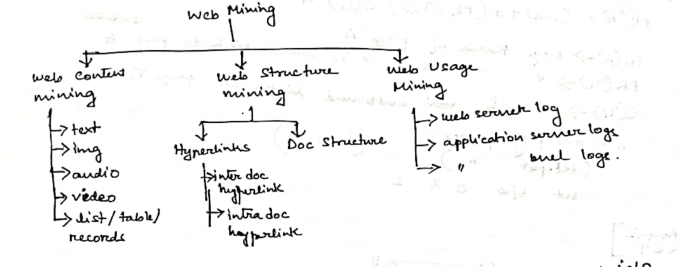 Web Mining
Web Content
mining
→ text
→ img
→ audio
→ video
→ list / table /
records
Web Structure
mining
Hyperlinks
→ inter doc
hyperlink
→ intra doc
hyperlink
Doc Structure
Web Usage
Mining
→ web server log
→ application server logs
→ " level logs.